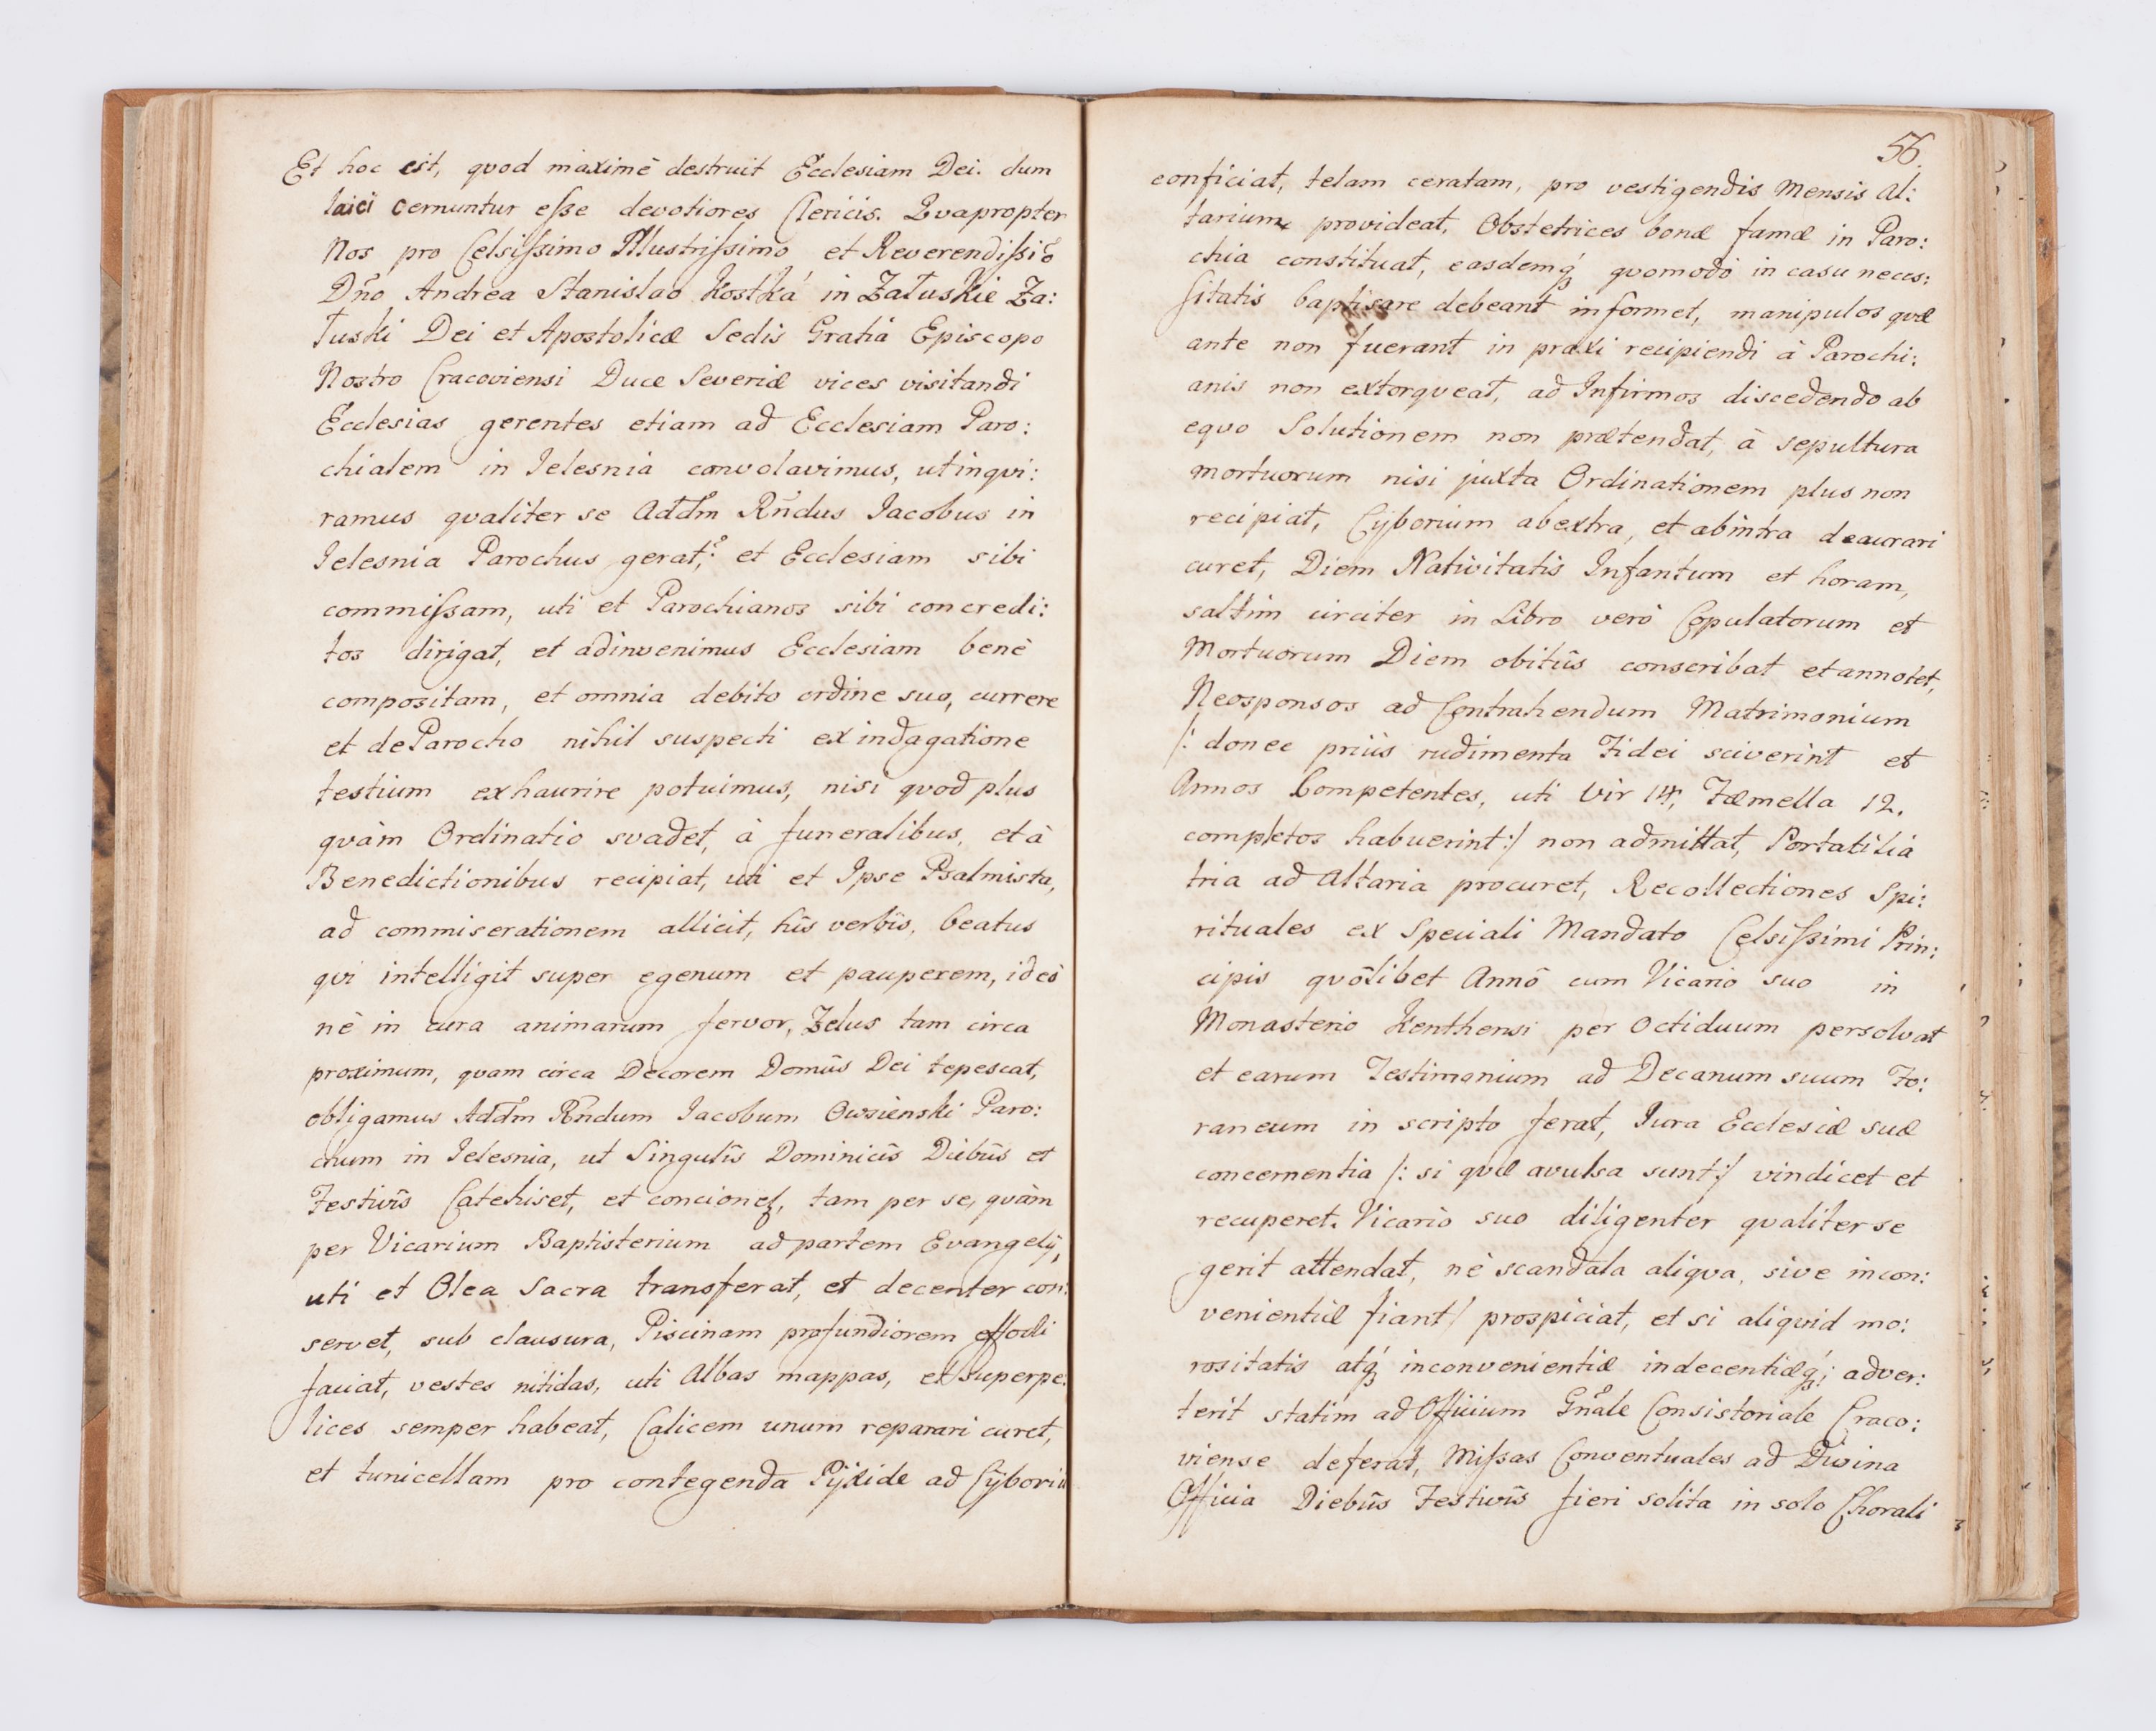 Et hoc est, quod maximè destruit Ecclesiam Dei. dum
laici cernuntur eſse devotiores Clericis. Qvapropter
Nos pro Celsiſsimo Illustriſsimo et Reverendiſsio
Dño Andrea Stanislao Kostka in Załuskie Za:
łuski Dei et Apostolicæ Sedis Gratiâ Episcopo
Nostro Cracoviensi Duce Severiæ vices visitandi
Ecclesias gerentes etiam ad Ecclesiam Paro:
chialem in Ielesnia convolavimus, ut inqvi:
ramus qvaliter se Addm Rñdus Iacobus in
Ielesnia Parochus gerat,? et Ecclesiam sibi
commiſsam, uti et Parochianos sibi concredi:
tos dirigat, et adinvenimus Ecclesiam benè
compositam, et omnia debito ordine suo, currere
et de Parocho nihil suspecti ex indagatione
testium exhaurire potuimus, nisi qvod plus
qvàm Ordinatio svadet, à funeralibus, et à
Benedictionibus recipiat, uti et Ipse Psalmista,
ad commiserationem allicit, hîs verbîs, beatus
qvi intelligit super egenum et pauperem, ideò
nè in cura animarum fervor, Zelus tam circa
proximum, quam circa Decorem Domûs Dei tepescat,
obligamus Addm Rñdum Iacobum Owsienski Paro:
chum in Ielesnia, ut Singulîs Dominicîs Diebûs et
Festivîs Catehiset, et concionet, tam per se, qvàm
per Vicarium Baptisterium ad partem Evangelÿ,
uti et Olea Sacra transferat, et decenter con:
servet, sub clausura, Piscinam profundiorem effodi
faciat, vestes nitidas, uti Albas mappas, et Superpe:
lices semper habeat, Calicem unum reparari curet,
et tunicellam pro contegenda Pÿxide ad Cÿboriu
56.
conficiat, telam ceratam, pro vestigendis Mensis Al:
tarium provideat, Obstetrices bonæ famæ in Paro:
chia constituat, easdemq́ qvomodò in casu neces:
sitatis baptisare debeant informet, manipulos qvæ
ante non fuerant in praxi recipiendi à Parochi:
anis non extorqveat, ad Infirmos discedendo ab
eqvo Solutionem non prætendat, à sepultura
mortuorum nisi juxta Ordinationem plus non
recipiat, Cÿborium ab extra, et ab intra deaurari
curet, Diem Nativitatis Infantum et horam,
saltim circiter in Libro verò Copulatorum et
Mortuorum Diem obitûs conscribat et annotet,
Neosponsos ad Contrahendum Matrimonium
/: donec priùs rudimenta Fidei sciverint et
Annos Competentes, uti Vir 14, Fæmella 12.
completos habuerint:/ non admittat, Portatilia
tria ad Altaria procuret, Recollectiones Spi:
rituales ex Speciali Mandato Celsiſsimi Prin:
cipis qvôlibet Annô cum Vicario suo in
Monasterio Kenthensi per Octiduum persolvat
et earum Testimonium ad Decanum suum Fo:
raneum in scripto ferat, Iura Ecclesiæ suæ
concernentia /: si qvæ avulsa sunt:/ vindicet et
recuperet. Vicariò suo diligenter qvaliter se
gerit attendat, nè scandala aliqva, sive incon:
venientiæ fiant/ prospiciat, et si aliqvid mo:
rositatis atq́ inconvenientiæ indecentiæq́; adver:
terit statim ad Officium Gñale Consistoriale Craco:
viense deferat, Miſsas Conventuales ad Divina
Officia Diebûs Festivîs fieri solita in solo Chorali